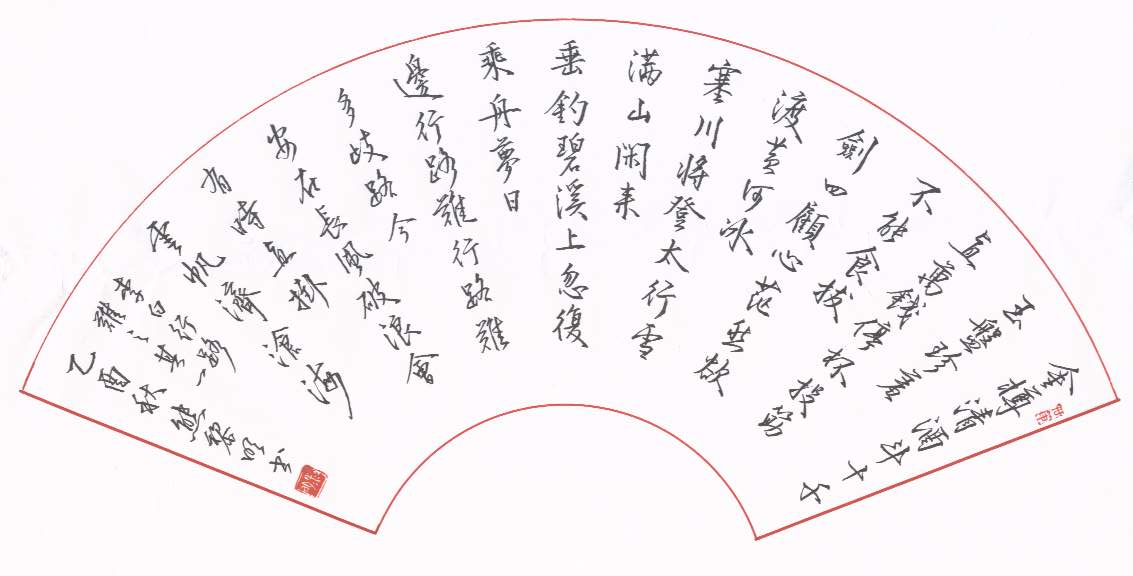 金樽清酒斗十千
玉盤珍羞
直萬錢停杯投筯
不能食拔
劍四顧心茫然欲
渡黃河冰
塞川將登太行雪
满山闲来
垂釣碧溪上忽復
乘舟夢日
邊行路難行路難
多歧路今
安在長風破浪會
有時直掛
雲帆濟滄海
李白行路
難之其一
乙酉秋熊书